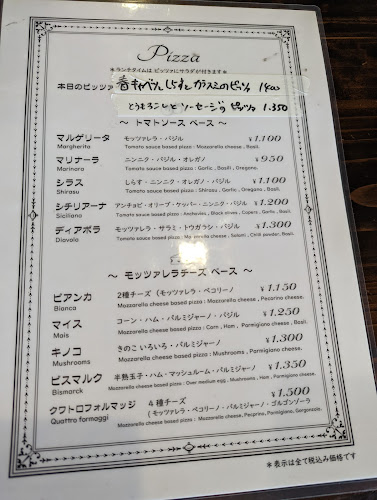 Pizza
＊ランチタイムは ピッツァにサラダが付きます＊
本日のピッツァ 春キャベツ、しらすと カラスミのピッツァ 1400
とうもろこしと ソーセージの ピッツァ 1.350
～ トマトソース ベース ～
マルゲリータ モッツァレラ・バジル ¥1.100
Margherita Tomato sauce based pizza : Mozzarella cheese , Basil.
マリナーラ ニンニク・バジル・オレガノ ¥950
Marinara Tomato sauce based pizza : Garlic , Basil , Oregano.
シラス しらす・ニンニク・オレガノ・バジル ¥1.100
Shirasu Tomato sauce based pizza : Shirasu , Garlic , Oregano , Basil.
シチリアーナ アンチョビ・オリーブ・ケッパー・ニンニク・バジル ¥1.200
Siciliana Tomato sauce based pizza : Anchovies , Black olives , Capers , Garlic , Basil.
ディアボラ モッツァレラ・サラミ・トウガラシ・バジル ¥1.300
Diavola Tomato sauce based pizza : Mozzarella cheese , Salami , Chilli powder , Basil.
～ モッツァレラチーズ ベース ～
ビアンカ 2種チーズ（モッツァレラ・ペコリーノ ¥1.150
Bianca Mozzarella cheese based pizza : Mozzarella cheese , Pecorino cheese.
マイス コーン・ハム・パルミジャーノ・バジル ¥1.250
Mais Mozzarella cheese based pizza : Corn , Ham , Parmigiano cheese , Basil.
キノコ きのこ いろいろ・パルミジャーノ ¥1.300
Mushrooms Mozzarella cheese based pizza : Mushrooms , Parmigiano cheese.
ビスマルク 半熟玉子・ハム・マッシュルーム・パルミジャーノ ¥1.350
Bismarck Mozzarella cheese based pizza : Over medium egg , Mushrooms , Ham , Parmigiano cheese.
クワトロフォルマッジ 4種チーズ ¥1.500
（モッツァレラ・ペコリーノ・パルミジャーノ・ゴルゴンゾーラ
Quattro formaggi Mozzarella cheese based pizza : Mozzarella cheese, Pecorino, Parmigiano, Gorgonzola.
＊表示は全て税込み価格です